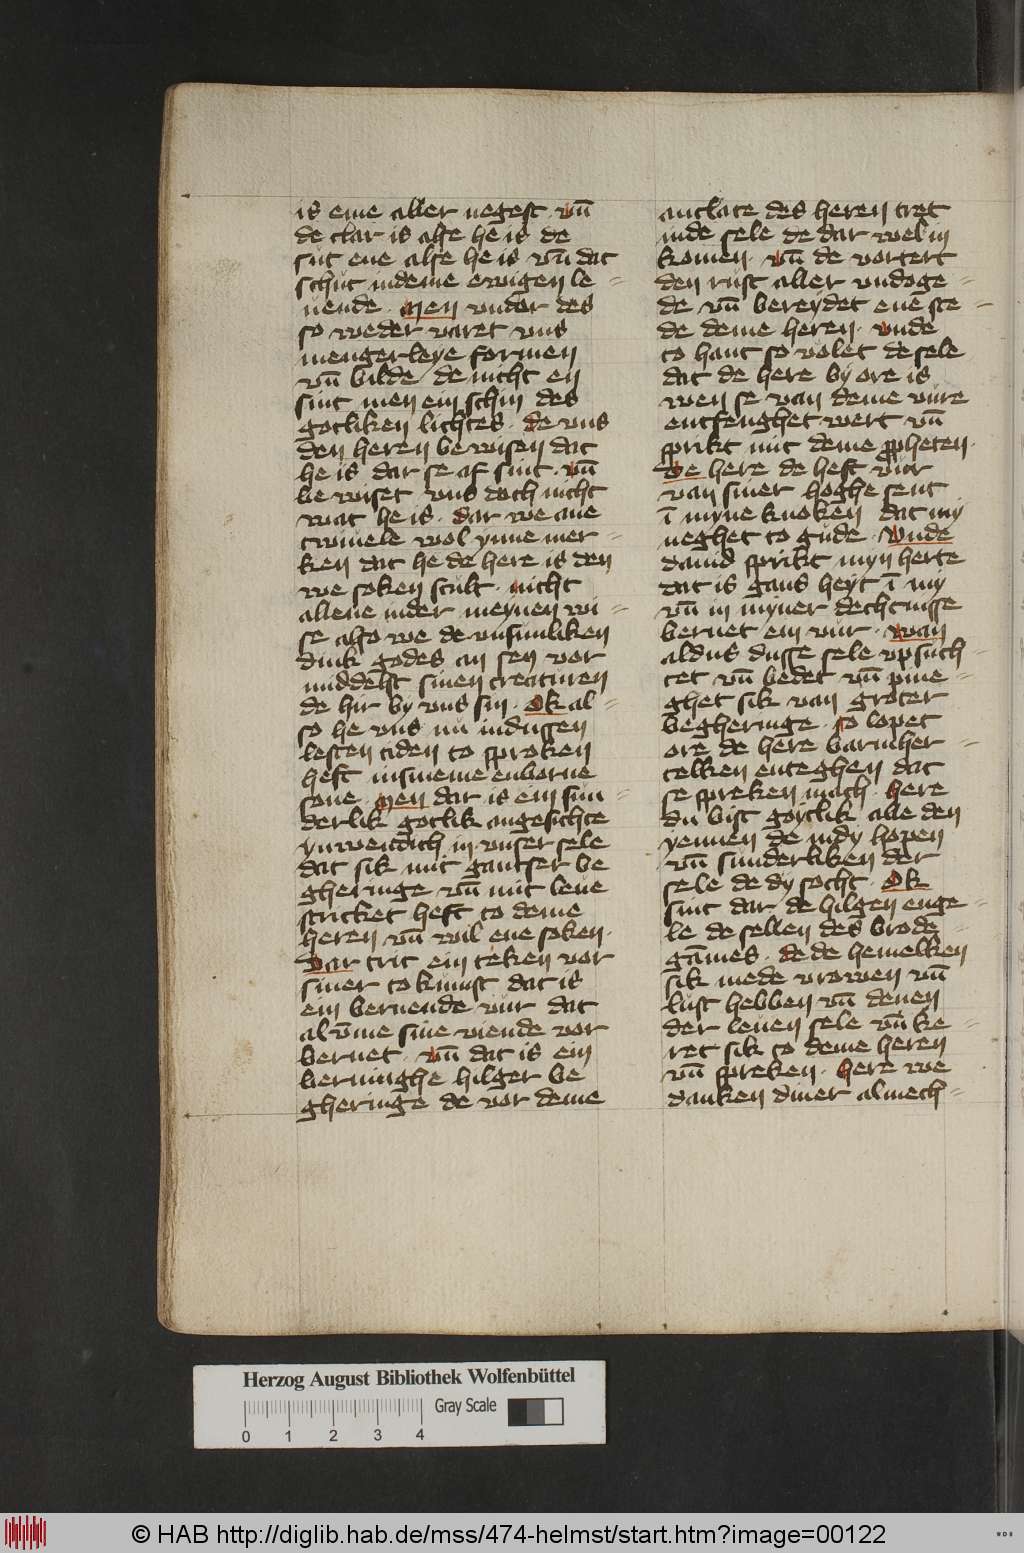 is eme aller negest · vn̄
de clar is alse he is de
sut ene alse he is vn̄ dat
schut indeme ewigen le=
uende · Men vndor des
so weder varet vns
mengerleye formen
vn̄ bilde de nicht en
sint men ein schin des
gotliken lichtes · de vns
den heren bewisen dat
he is dar se af sint · vn̄
bewiset vns doch nicht
wat he is · dar we ane
twiuele wol ynne mer-
ken dat he de here is den
we soken scult · nicht
allene inder meynen wi=
se also we de vnsunliken
dink godes an sen vor
middelst sinen creaturen
de hir by vns sin · Ok al=
so he vns nu indussen
lesten tiden to sproken
heft insineme enborne
sone · Men dar is ein sun=
derlik gotlik angesichte
ynwendich in vnser sele
dat sik mit gantser be
gheringe vn̄ mit leue
stricket heft to deme
heren vn̄ wil ene soken ·
Dar trit ein teken vor
siner tokumst dat is
ein bernende vur dat
al v̄me sine viende vor
bernet · vn̄ dat is ein
berninghe hilger be
gheringe de vor deme
antlate des heren tret
inde sele de dar wel in
komen · vn̄ de vortert
den rust aller vndoge=
de vn̄ bereydet enē ste=
de deme heren · vnde
to hant so volet de sele
dat de here by ore is
wen se van deme vure
entfenghet wert vn̄
sprikt mit deme ꝓpheten ·
De here de heft vur
van siner hoghe sent
ī myne knoken dat my
neghet to gude · Vnde
dauid sprikt myn herte
dat is gans heyt ī my
vn̄ in myner dechtnisse
bernet ein vur · wan
aldus dusse sele vpsuch=
tet vn̄ bedet vn̄ pine=
ghet sik van groter
begheringe · so lopet
ore de here barmher=
telken enteghen dat
se spreken mach · here
du bist goytlik alle den
yennen de indy hopen
vn̄ sunderliken der
sele de dy socht · Ok
sint dar de hilgen enge=
le de sellen des brode=
gāmes · de de hemelken
sik mede vrowen vn̄
lust hebben vn̄ denen
der leuen sele vn̄ ke=
ret sik to deme heren
vn̄ spreken · here we
danken diner almech=
Herzog August Bibliothek Wolfenbüttel
Gray Scale
0 1 2 3 4
© HAB http://diglib.hab.de/mss/474-helmst/start.htm?image=00122